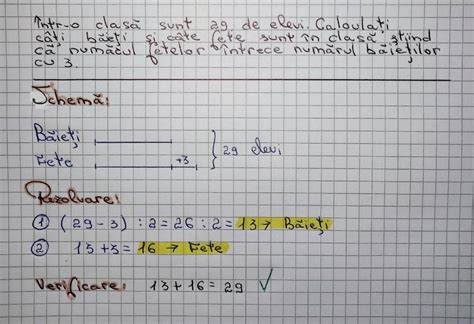 Într-o clasă sunt 29 de elevi. Calculați
câți băieți și câte fete sunt în clasă știind
că numărul fetelor întrece numărul băieților
cu 3.
Schemă:
Băieți
Fete +3 } 29 elevi
Rezolvare:
① (29-3) : 2 = 26 : 2 = 13 → Băieți
② 13 + 3 = 16 → Fete
Verificare: 13 + 16 = 29 ✓